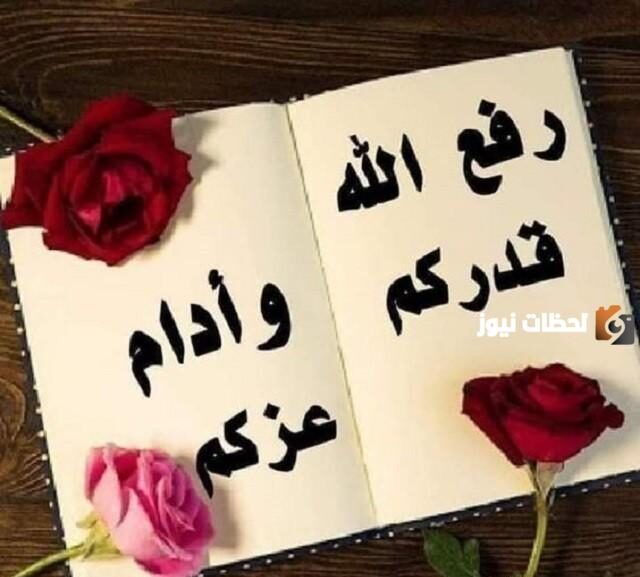 رفع الله
قدركم
وأدام
عزكم
لحظات نيوز